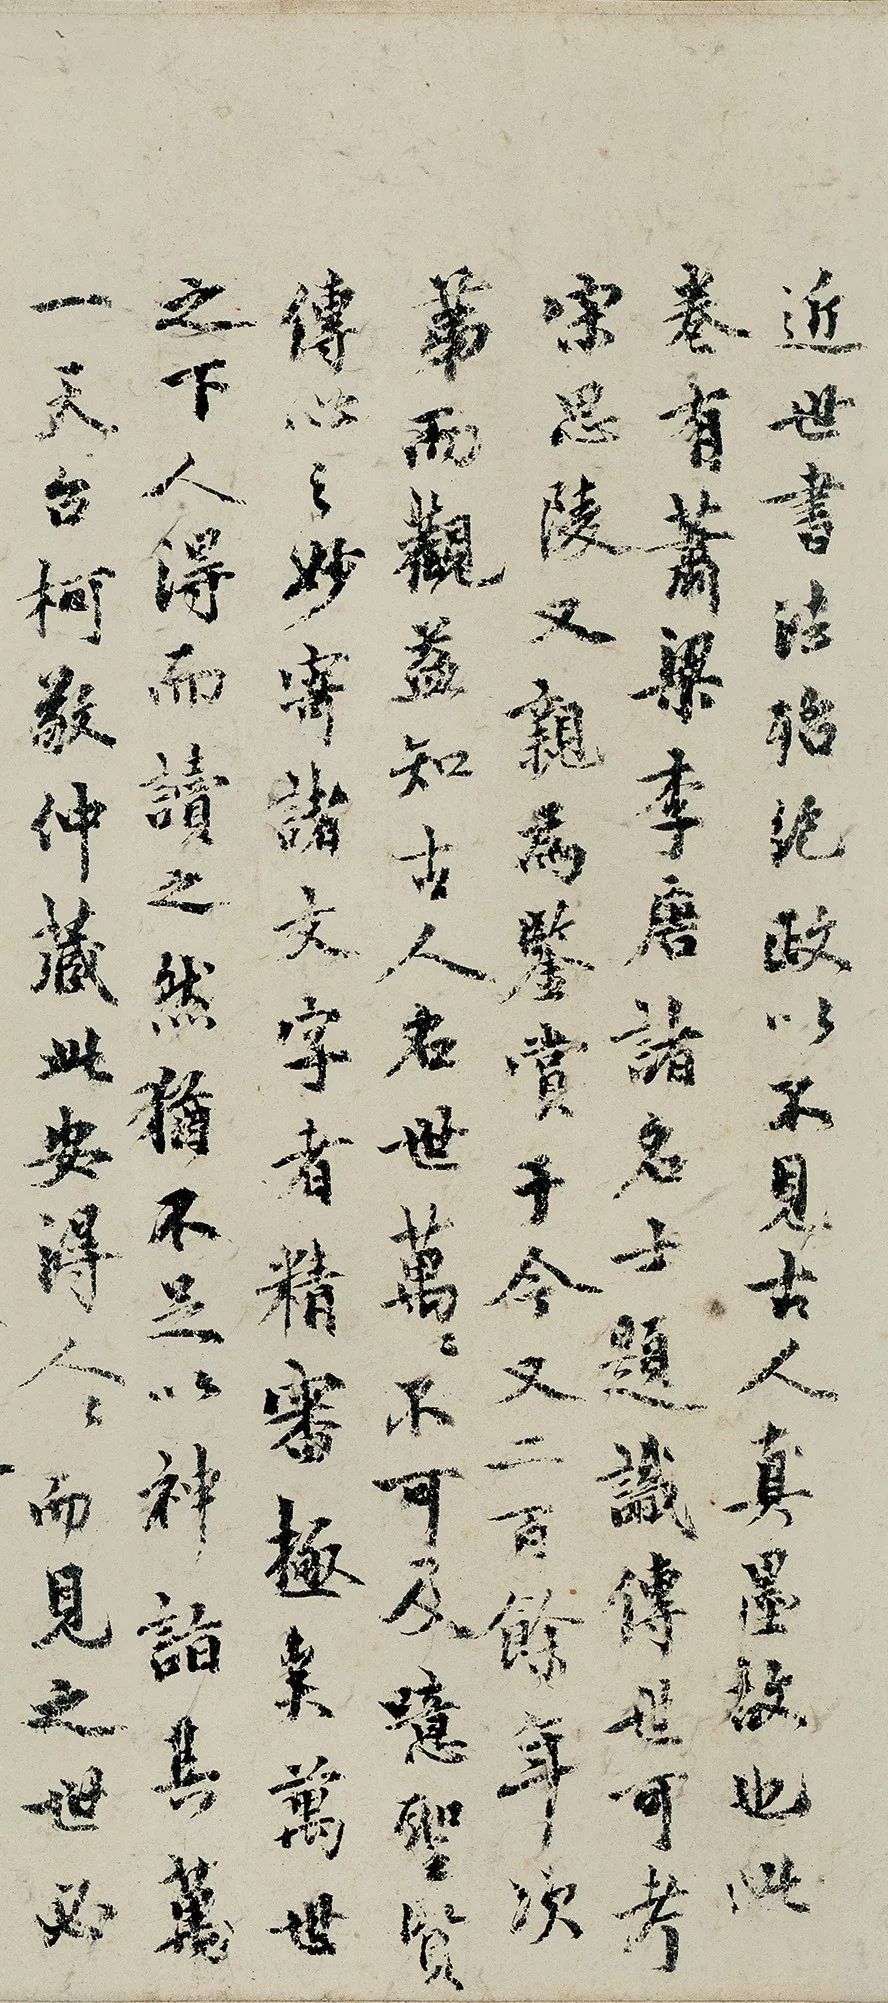 近世書法殆絕政以不見古人真墨故也此
卷有蕭梁李唐諸名士題識傳世可考
宋思陵又親為鑒賞于今又二百餘年次
第而觀益知古人名世萬〻不可及噫聖賢
傳心之妙寄諸文字者精審極矣萬世
之下人得而讀之然猶不足以神詣其萬
一天台柯敬仲藏此安得人〻而見之世必